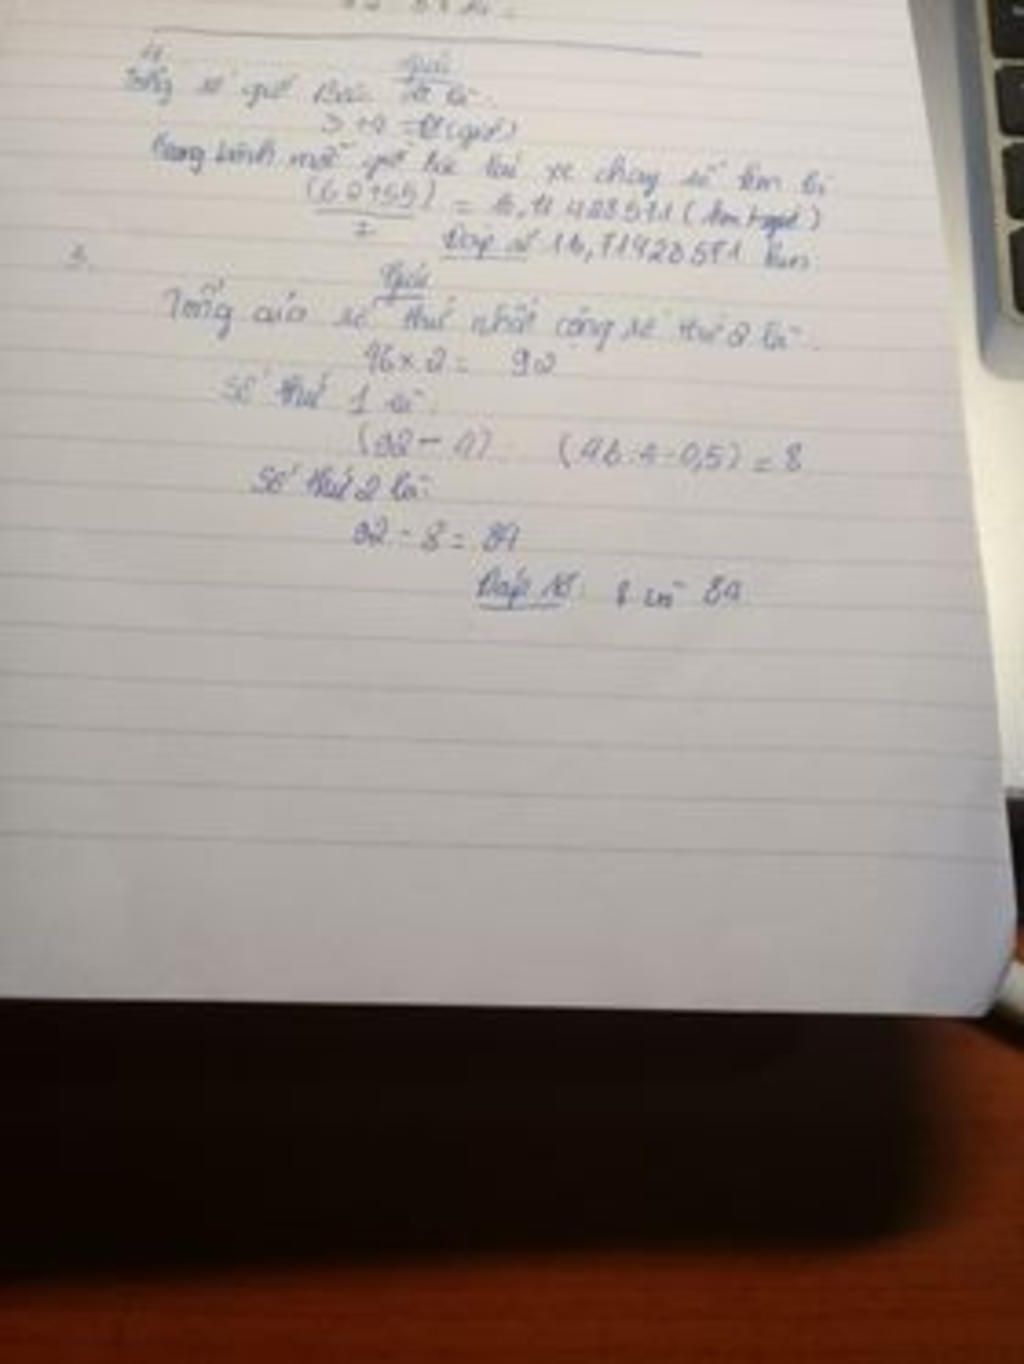 4
Giải
Tổng số giờ Bác lái là:
3+4=7(giờ)
Trung bình mỗi giờ bác lái xe chạy số km là
(62+55) = 16,71428571 (km/giờ)
7
Đáp số 16,71428571 km
5.
Giải
Tổng của số thứ nhất cộng số thứ 2 là:
46×2= 92
Số thứ 1 là:
(92 - 4) = 8
Số thứ 2 là:
92 - 8 = 84
Đáp số: 8 và 84